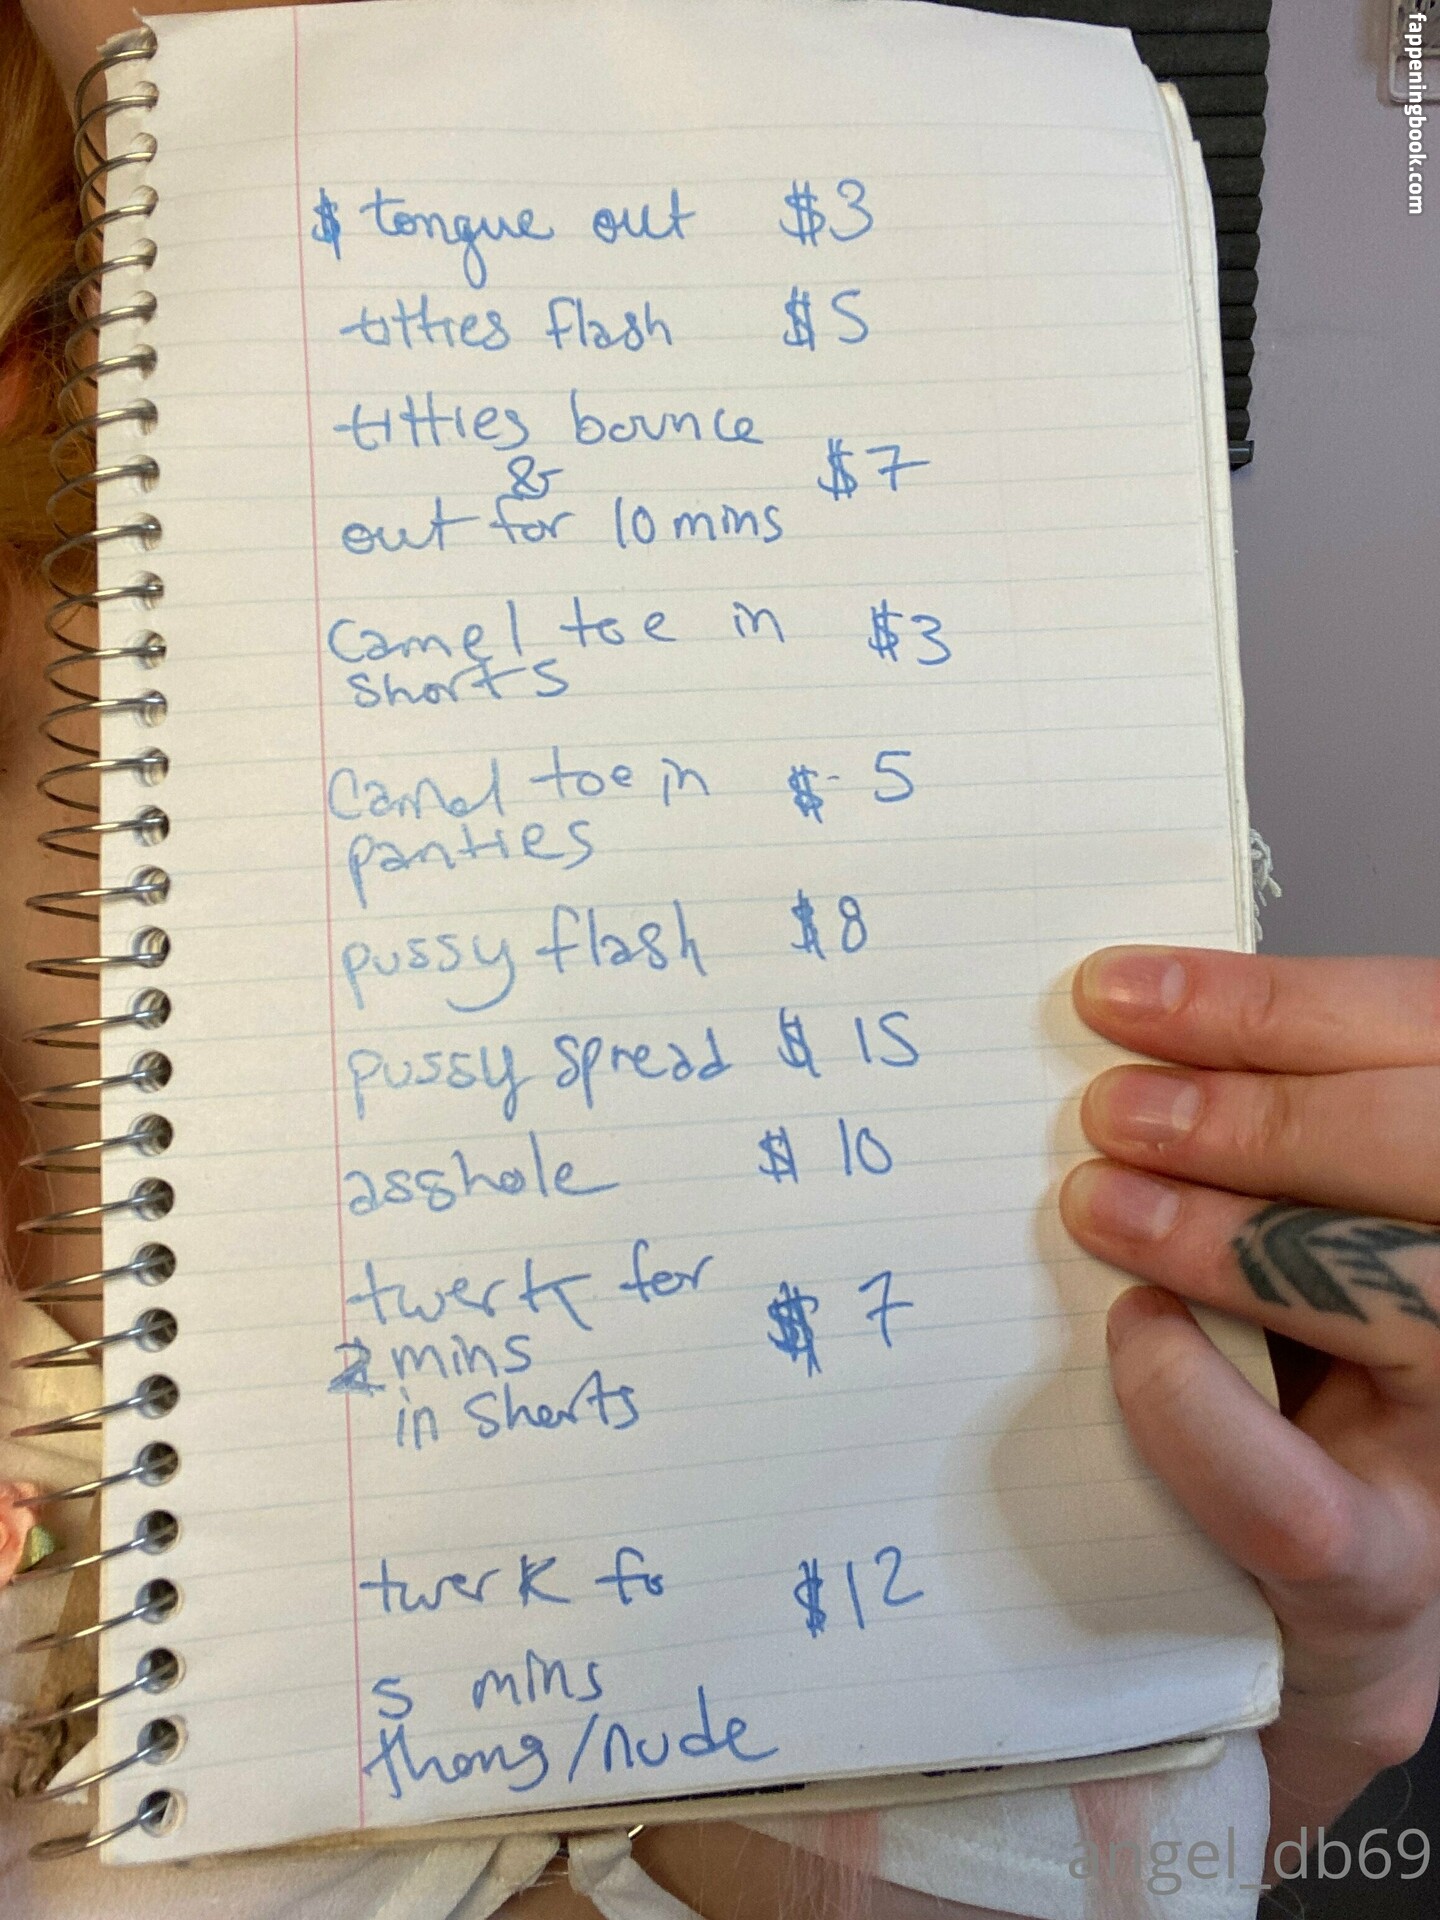 fappeningbook.com
$ tongue out $3
titties flash $5
titties bounce
&
out for 10 mins $7
Camel toe in $3
shorts
Camel toe in $- 5
panties
pussy flash $8
pussy spread $ 15
asshole $ 10
twerk for
2 mins $ 7
in shorts
twerk fo $12
5 mins
thong/nude
angel_db69